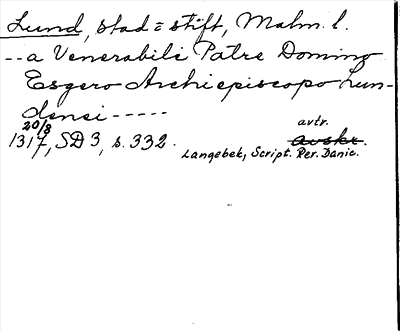 Lund, stad = stift, Malm. l.
-- a Venerabili Patre Domino
Esgero Archiepiscopo Lun-
densi -----
20/8
1317, SD 3, s. 332.
avtr.
avskr.
Langebek, Script. Rer. Danic.